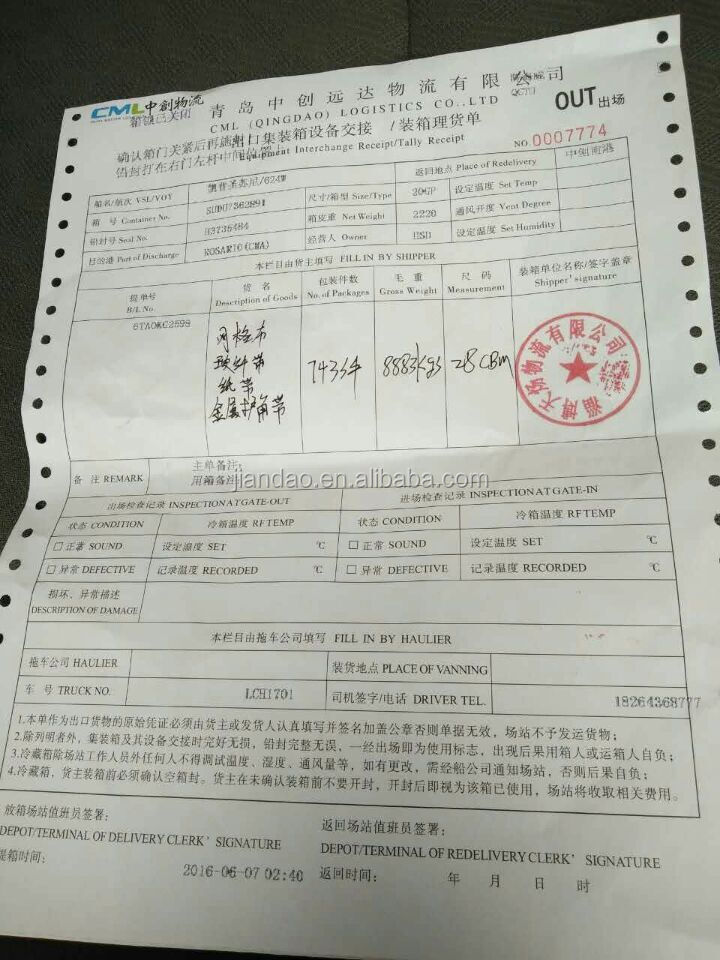 CML 中创物流
箱锁已关闭
青岛中创远达物流有限公司
CML (QINGDAO) LOGISTICS CO.,LTD
OUT 出场
确认箱门关紧后再施封
铅封打在右门左杆中间位置
出口集装箱设备交接 /装箱理货单
Equipment Interchange Receipt/Tally Receipt
NO.0007774
船名/航次 VSL/VOY /624W
返回地点 Place of Redelivery 中创前港
箱 号 Container No. SUDU7362891 尺寸/箱型 Size/Type 20GP 设定温度 Set Temp
铅封号 Seal No. H3735484 箱皮重 Net Weight 2220 通风开度 Vent Degree
目的港 Port of Discharge ROSARIO(CMA) 经营人 Owner HSD 设定湿度 Set Humidity
本栏目由货主填写 FILL IN BY SHIPPER
提单号 货 名 包装件数 毛 重 尺 码 装箱单位名称/签字盖章
B/L No. Description of Goods No. of Packages Gross Weight Measurement Shipper' signature
6TAOKC2598
网格布
玻纤带
纸带
金属护角带
743件 8883kgs 28CBM
备 注 REMARK
主单备注:
用箱备注:
jiandao.en.alibaba.com
出场检查记录 INSPECTION AT GATE-OUT 进场检查记录 INSPECTION AT GATE-IN
状态 CONDITION 冷箱温度 RF TEMP 状态 CONDITION 冷箱温度 RF TEMP
□ 正常 SOUND 设定温度 SET ℃ □ 正常 SOUND 设定温度 SET ℃
□ 异常 DEFECTIVE 记录温度 RECORDED ℃ □ 异常 DEFECTIVE 记录温度 RECORDED ℃
损坏、异常描述
DESCRIPTION OF DAMAGE
本栏目由拖车公司填写 FILL IN BY HAULIER
拖车公司 HAULIER 装货地点 PLACE OF VANNING
车 号 TRUCK NO. LCH1701 司机签字/电话 DRIVER TEL. 18264368777
1.本单作为出口货物的原始凭证必须由货主或发货人认真填写并签名加盖公章否则单据无效，场站不予发运货物；
2.除列明者外，集装箱及其设备交接时完好无损，铅封完整无误，一经出场即为使用标志，出现后果用箱人或运箱人自负；
3.冷藏箱除场站工作人员外任何人不得调试温度、湿度、通风量等，如有更改，需经船公司通知场站，否则后果自负；
4.冷藏箱，货主装箱前必须确认空箱封。货主在未确认装箱前不要开封，开封后即视为该箱已使用，场站将收取相关费用。
放箱场站值班员签署:
DEPOT/TERMINAL OF DELIVERY CLERK' SIGNATURE
提箱时间: 2016-06-07 02:46
返回场站值班员签署:
DEPOT/TERMINAL OF REDELIVERY CLERK' SIGNATURE
返回时间: 年 月 日 时